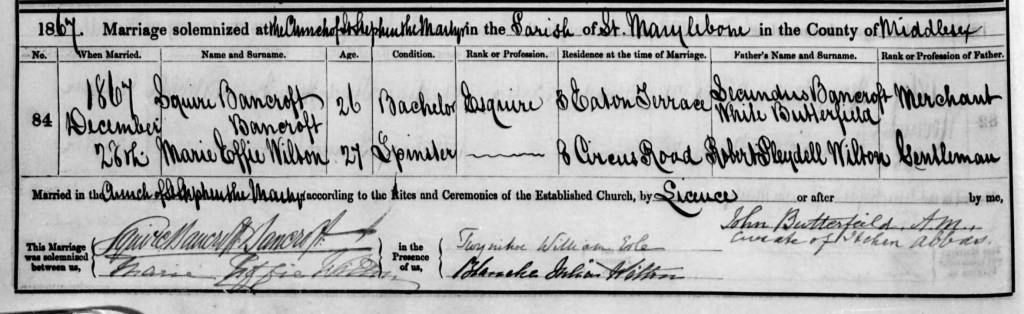 1867. Marriage solemnized at the Church of St Stephen the Martyr in the Parish of St. Marylebone in the County of Middlesex
No. When Married. Name and Surname. Age. Condition. Rank or Profession. Residence at the time of Marriage. Father's Name and Surname. Rank or Profession of Father.
84 1867 December 28th
Squire Bancroft Bancroft 26 Bachelor Esquire 8 Eaton Terrace Secundus Bancroft White Butterfield Merchant
Marie Effie Wilton 27 Spinster 8 Circus Road Robert Pleydell Wilton Gentleman
Married in the Church of St Stephen the Martyr according to the Rites and Ceremonies of the Established Church, by Licence or after by me,
John Butterfield, A.M.,
Curate of Itchen Abbas.
This Marriage was solemnized between us,
Squire Bancroft Bancroft
Marie Effie Wilton
in the Presence of us,
William
Blanche Julia Wilton